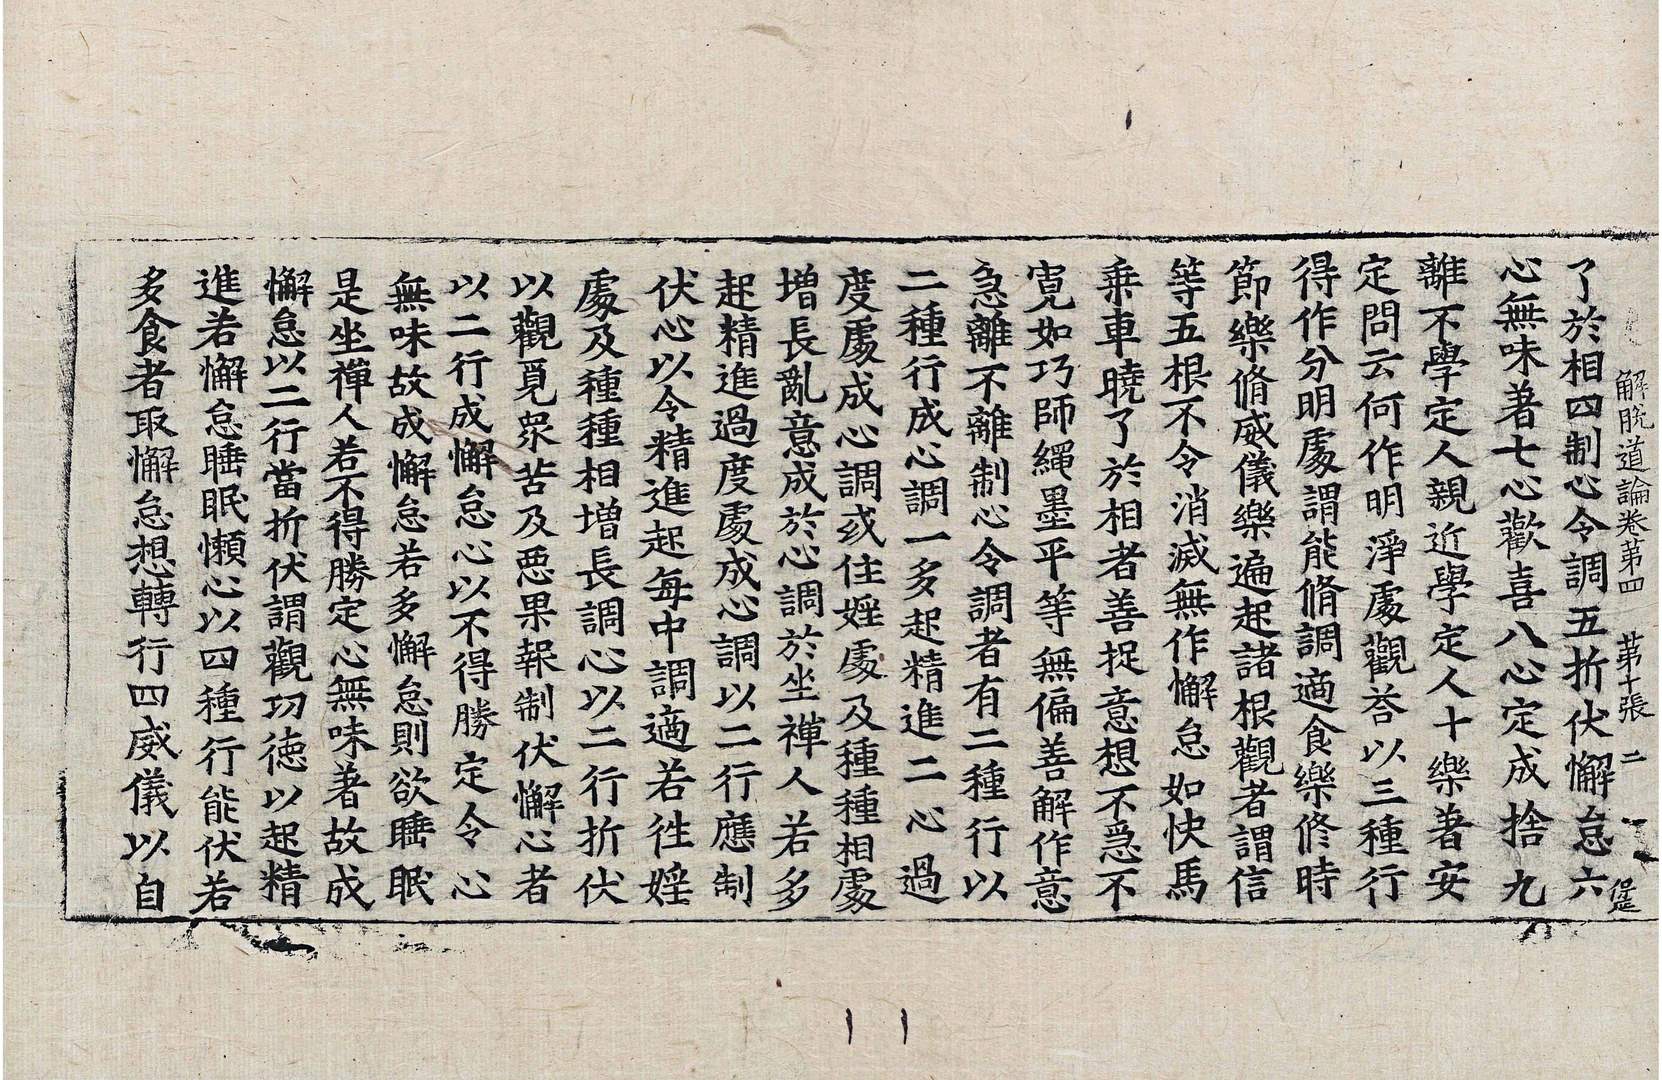 解脫道論卷第四 第十張 二
了於相四制心令調五折伏懈怠六
心無味著七心歡喜八心定成捨九
離不學定人親近學定人十樂著安
定問云何作明淨處觀荅以三種行
得作分明處謂能脩調適食樂修時
節樂脩威儀樂遍起諸根觀者謂信
等五根不令消滅無作懈怠如快馬
乗車曉了於相者善捉意想不急不
寬如巧師繩墨平等無偏善解作意
急離不離制心令調者有二種行以
二種行成心調一多起精進二心過
度處成心調或住婬處及種種相處
増長亂意成於心調於坐禪人若多
起精進過度處成心調以二行應制
伏心以令精進起每中調適若徃婬
處及種種相増長調心以二行折伏
以觀覓衆苦及悪果報制伏懈心者
以二行成懈怠心以不得勝定令心
無味故成懈怠若多懈怠則欲睡眠
是坐禪人若不得勝定心無味著故成
懈怠以二行當折伏謂觀功徳以起精
進若懈怠睡眠懶心以四種行能伏若
多食者取懈怠想轉行四威儀以自